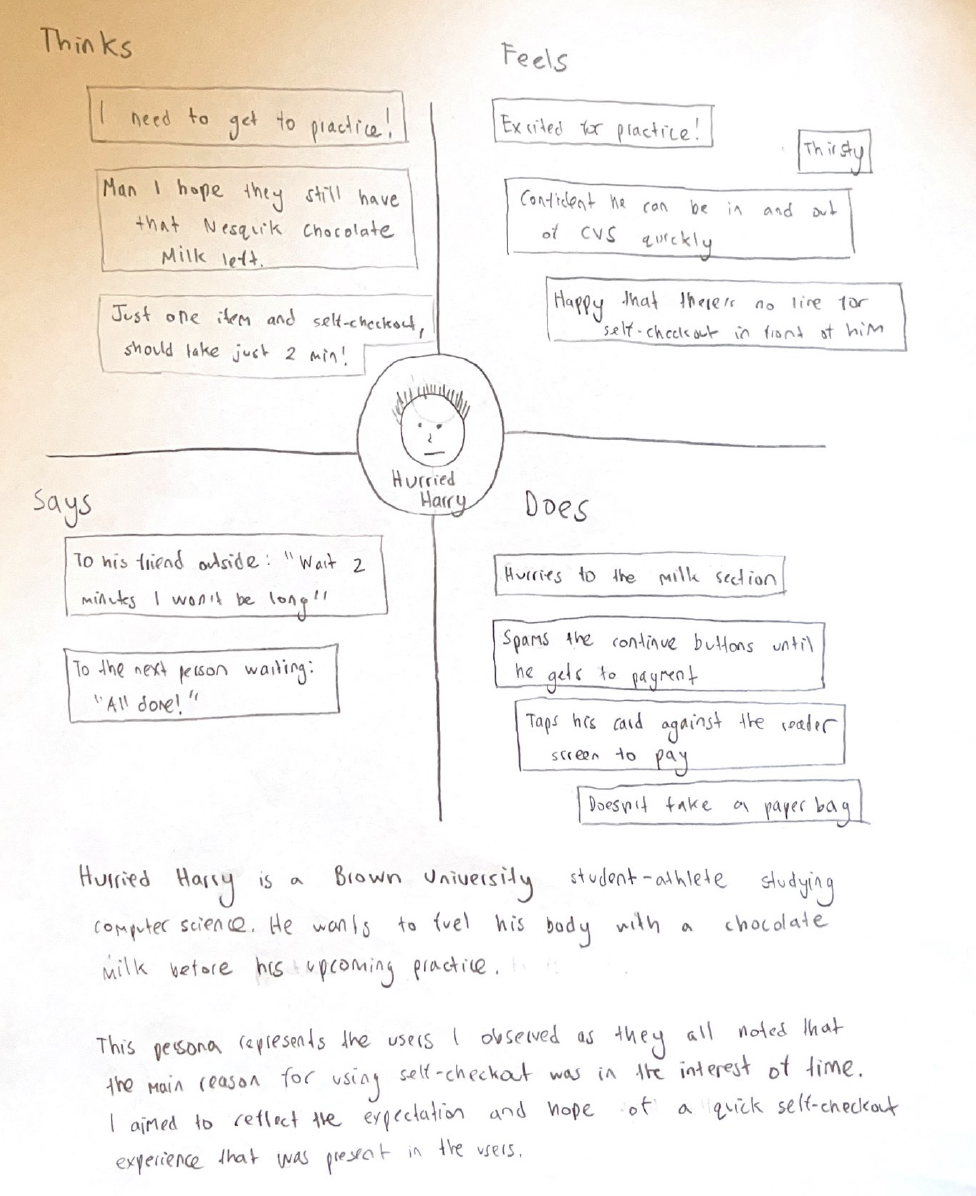 Thinks
I need to get to practice!
Man I hope they still have
that Nesquik Chocolate
Milk left.
Just one item and self-checkout,
should take just 2 min!
Feels
Excited for practice!
Thirsty
Confident he can be in and out
of CVS quickly
Happy that there's no line for
self-checkout in front of him
Hurried
Harry
Says
To his friend outside: "Wait 2
minutes I won't be long!"
To the next person waiting:
"All done!"
Does
Hurries to the milk section
Spams the continue buttons until
he gets to payment
Taps his card against the reader
screen to pay
Doesn't take a paper bag
Hurried Harry is a Brown University student-athlete studying
computer science. He wants to fuel his body with a chocolate
milk before his upcoming practice.
This persona represents the users I observed as they all noted that
the main reason for using self-checkout was in the interest of time.
I aimed to reflect the expectation and hope of a quick self-checkout
experience that was present in the users.